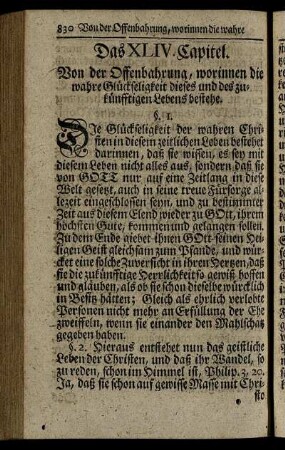 830 Von der Offenbahrung, worinnen die wahre
Das XLIV. Capitel.
Von der Offenbahrung, worinnen die
wahre Glückseligkeit dieses und des zu-
künfftigen Lebens bestehe.
§. 1.
Die Glückseligkeit der wahren Chri-
sten in diesem zeitlichen Leben bestehet
darinnen, daß sie wissen, es sey mit
diesem Leben nicht alles aus, sondern daß sie
von GOTT nur auf eine Zeitlang in diese
Welt gesetzt, auch in seine treue Fürsorge al-
lezeit eingeschlossen seyn, und zu bestimmter
Zeit aus diesem Elend wieder zu GOtt, ihrem
höchsten Gute, kommen und gelangen sollen.
Zu dem Ende giebet ihnen GOtt seinen Hei-
ligen Geist gleichsam zum Pfande, und wür-
cket eine solche Zuversicht in ihren Hertzen, daß
sie die zukünfftige Herrlichkeit so gewiß hoffen
und gläuben, als ob sie schon dieselbe würcklich
in Besitz hätten; Gleich als ehrlich verlobte
Personen nicht mehr an Erfüllung der Ehe
zweiffeln, wenn sie einander den Mahlschatz
gegeben haben.
§. 2. Hieraus entstehet nun das geistliche
Leben der Christen, und daß ihr Wandel, so
zu reden, schon im Himmel ist, Philip. 3, 20.
Ja, daß sie schon auf gewisse Masse mit Chri-
sto